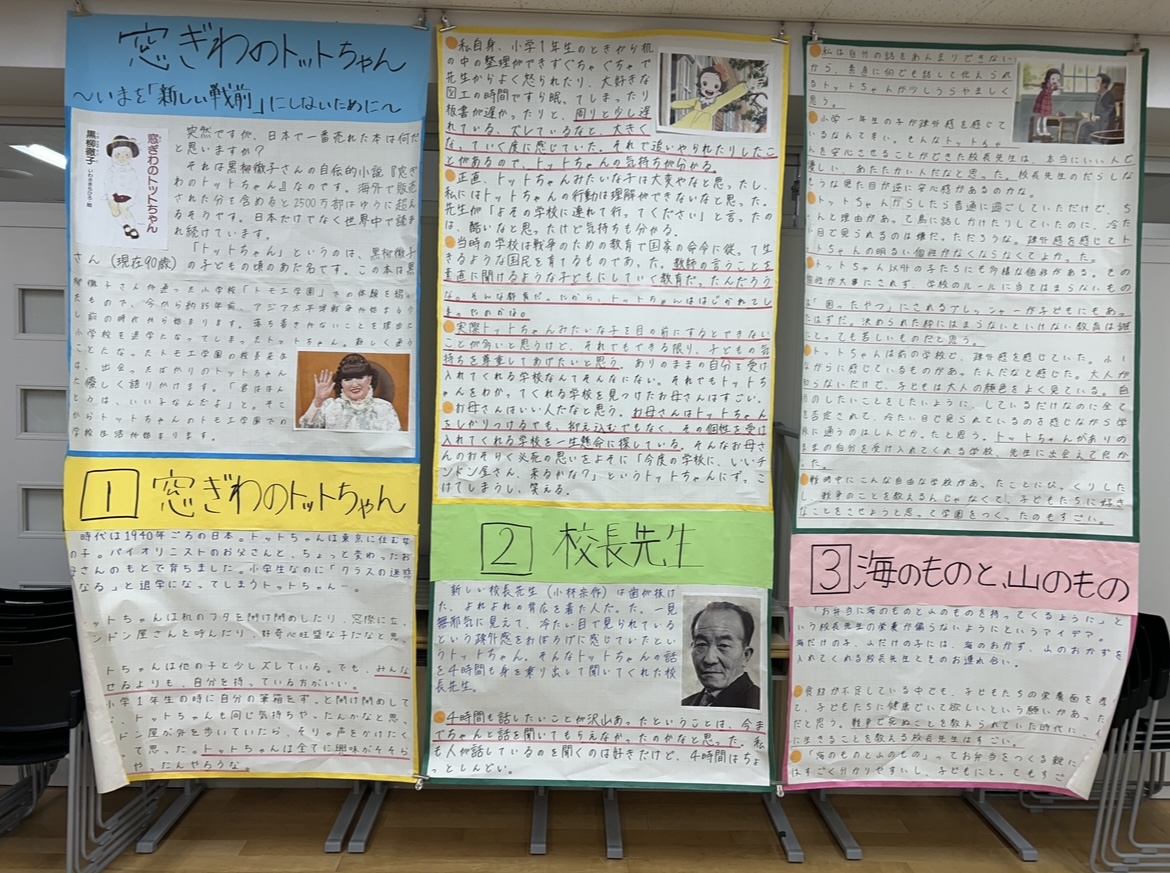 窓ぎわのトットちゃん
〜いまを「新しい戦前」にしないために〜
窓ぎわのトットちゃん
黒柳徹子
いわさきちひろ・絵
突然ですが、日本で一番売れた本は何だ
と思いますか?
それは黒柳徹子さんの自伝的小説『窓ぎ
わのトットちゃん』なのです。海外で販売
された分を含めると2500万部はゆうに超え
るそうです。日本だけでなく世界中で読ま
れ続けています。
「トットちゃん」というのは、黒柳徹子
さん(現在90歳)の子どもの頃のあだ名です。この本は黒
柳徹子さんが通った小学校「トモエ学園」での体験を綴っ
たもので、今から約85年前、アジア太平洋戦争が始まる少
し前の時代から始まります。落ち着きがないことを理由に
小学校を退学となってしまったトットちゃん。新しく通う
ことになったトモエ学園の校長先生
は、出会ったばかりのトットちゃん
に優しく語りかけます。「君はほん
とうは、いい子なんだよ」と。そこ
からトットちゃんのトモエ学園での
学校生活が始まります。
1 窓ぎわのトットちゃん
時代は1940年ごろの日本。トットちゃんは東京に住む女
の子。バイオリニストのお父さんと、ちょっと変わったお
母さんのもとで育ちました。小学生なのに「クラスの迷惑
なる」と退学になってしまうトットちゃん…。
ットちゃんは机のフタを開け閉めしたり、窓際に立
ンドン屋さんを呼んだり、好奇心旺盛な子だなと思
トちゃんは他の子と少しズレている。でも、みんな
せるよりも、自分を持っている方がいい。
小学1年生の時に自分の筆箱をずっと開け閉めして
、トットちゃんも同じ気持ちやったんかなと思
ドン屋が外を歩いていたら、そりゃ声をかけたく
て思った。トットちゃんは全てに興味がそそら
やったんやろうな。
私自身、小学1年生のときから机
の中の整理ができずぐちゃぐちゃで
先生からよく怒られたり、大好きな
図工の時間ですら眠ってしまったり
板書が遅かったりと、周りと少し遅
れている、ズレているなと、大きく
なっていく度に感じていた。それで追いやられたりしたこ
とがあるので、トットちゃんの気持ちが分かる。
正直、トットちゃんみたいな子は大変やなと思ったし、
私にはトットちゃんの行動は理解ができないなと思った。
先生が「よその学校に連れて行ってください」と言ったの
は、酷いなと思ったけど気持ちも分かる。
当時の学校は戦争のための教育で国家の命令に従って生
きるような国民を育てるものであった。教師の言うことを
素直に聞けるような子どもにしていく教育だったんだろう
な。そんな教育だったから、トットちゃんははじかれてし
まったのかな。
実際トットちゃんみたいな子を目の前にするとできない
ことが多いと思うけど、それでもできる限り、子どもの気
持ちを尊重してあげたいと思う。ありのままの自分を受け
入れてくれる学校なんてそんなにない。それでもトットち
ゃんをわかってくれる学校を見つけたお母さんはすごい。
お母さんはいい人だなと思う。お母さんはトットちゃん
をしかりつけるでも、抑え込むでもなく、その個性を受け
入れてくれる学校を一生懸命に探している。そんなお母さ
んのおそらく必死の思いをよそに「今度の学校に、いいチ
ンドン屋さん、来るかな?」というトットちゃんにずっこ
けてしまうし、笑える。
2 校長先生
新しい校長先生(小林宗作)は歯が抜け
た、よれよれの背広を着た人だった。一見
無邪気に見えて、冷たい目で見られている
という疎外感をおぼろげに感じていたとい
うトットちゃん。そんなトットちゃんの話
を4時間も身を乗り出して聞いてくれた校
長先生。
4時間も話したいことが沢山あったということは、今ま
でちゃんと話を聞いてもらえなかったのかなと思った。私
も人が話しているのを聞くのは好きだけど、4時間はちょ
っとしんどい。
私は自分の話をあんまりできない
から、素直に何でも話して伝えられ
るトットちゃんが少しうらやましく
思う。
小学一年生の子が疎外感を感じて
いるなんてすごい。そんなトットちゃ
んを安心させることができた校長先生は、本当にいい人で
優しい、あたたかい人だなと思った。校長先生のだらしな
そうな見た目が逆に安心感があるのかな。
トットちゃんからしたら普通に過ごしていただけで、ち
ゃんと理由があって鳥に話しかけたりしていたのに、冷た
い目で見られるのは嫌だっただろうな。疎外感を感じてト
ットちゃんの明るい個性がなくならなくてよかった。
トットちゃん以外の子たちにも多様な個性がある。その
個性が大事にされず、学校のルールに当てはまらないもの
は「困ったやつ」にされるプレッシャーが子どもにもあっ
たはずだ。決められた枠にはまらないといけない教育は誰
にとっても苦しいものだと思う。
トットちゃんは前の学校で、疎外感を感じていた。小1
ながらに感じているものがあったんだなと感じた。大人が
知らないだけで、子どもは大人の顔色をよく見ている。自
分のしたいことをしたいように、しているだけなのに全て
を否定されて、冷たい目で見られているのを感じながら学
校に通うのはしんどかったと思う。トットちゃんがありの
ままの自分を受け入れてくれる学校、先生に出会えて良か
った。
戦時中にこんな自由な学校があったことにびっくりし
た。戦争のことを教えるんじゃなくて、子どもたちに好き
なことをさせようと思って学園をつくったのもすごい。
3 海のものと、山のもの
「お弁当に海のものと山のものを持ってくるように」と
いう校長先生の栄養が偏らないようにというアイデア。
海だけの子、山だけの子には、海のおかず、山のおかずを
入れてくれる校長先生とのお連れ合い。
食料が不足している中でも、子どもたちの栄養面を考
え、子どもたちに健康でいて欲しいという願いがあった
だと思う。戦争で死ぬことを教えられていた時代に、
に生きることを教える校長先生はすごい。
「海のものと山のもの」ってお弁当をつくる親に
はすごく分かりやすいし、子どもにとってもすご